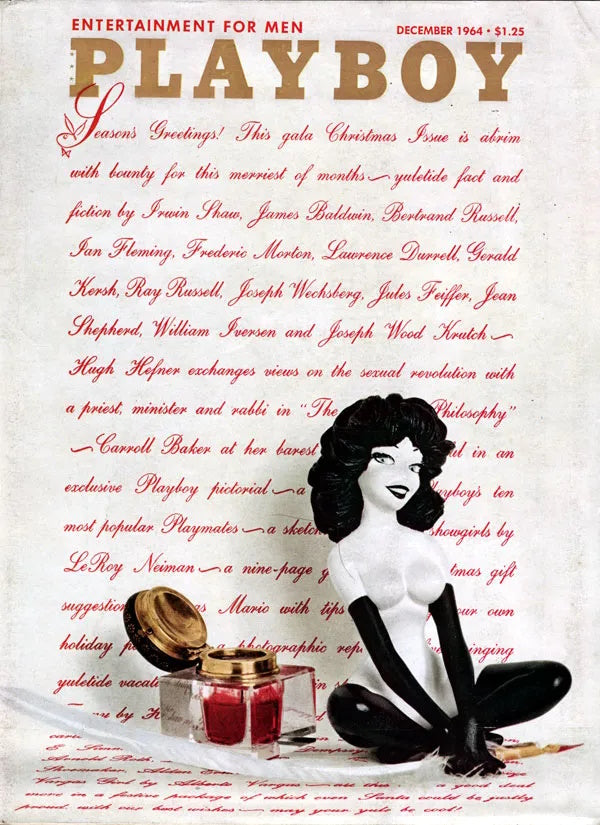 ENTERTAINMENT FOR MEN
DECEMBER 1964 • $1.25
PLAYBOY
Season's Greetings! This gala Christmas Issue is abrim
with bounty for this merriest of months — yuletide fact and
fiction by Irwin Shaw, James Baldwin, Bertrand Russell,
Ian Fleming, Frederic Morton, Lawrence Durrell, Gerald
Kersh, Ray Russell, Joseph Wechsberg, Jules Feiffer, Jean
Shepherd, William Iversen and Joseph Wood Krutch —
Hugh Hefner exchanges views on the sexual revolution with
a priest, minister and rabbi in "The Philosophy"
— Carroll Baker at her barest in an
exclusive Playboy pictorial — a ten
most popular Playmates — a showgirls by
LeRoy Neiman — a nine-page gift
Mario with tips own
holiday a photographic
yuletide
by
Vargas Girl by Alberto Vargas — all this a good deal
more in a festive package of which even Santa could be justly
proud, with our best wishes — may your yule be cool!